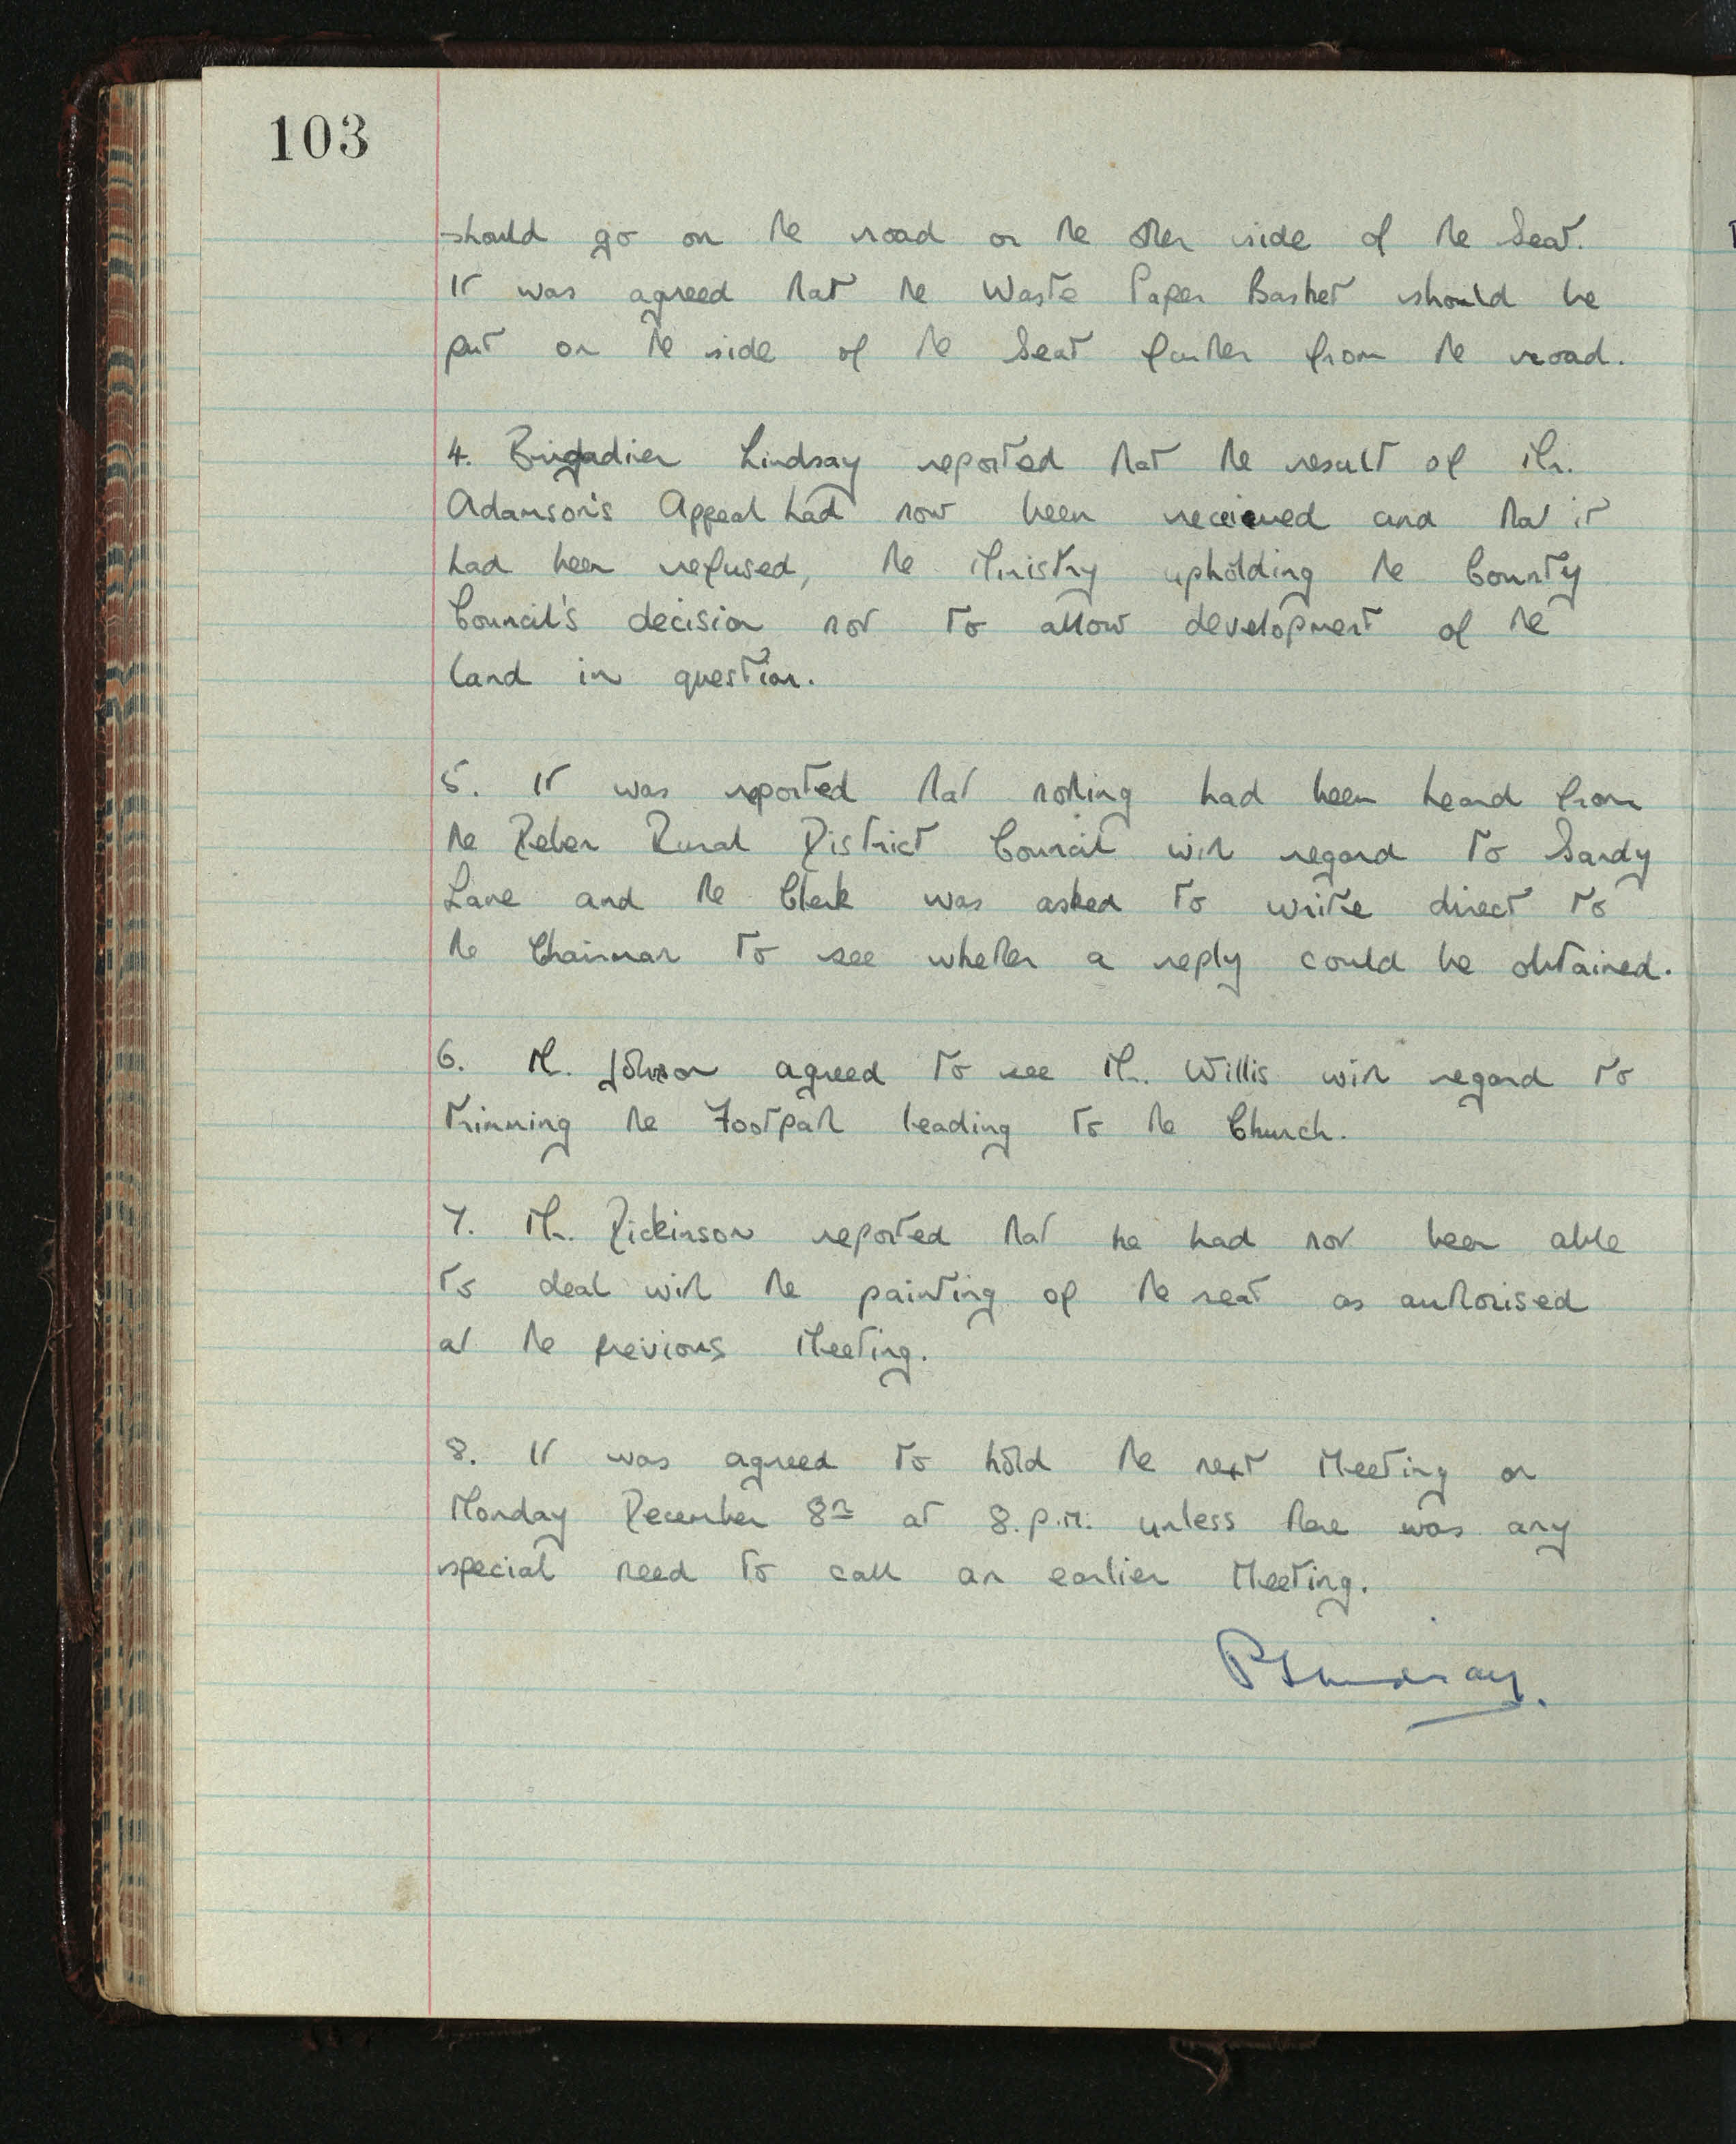 103
should go on the road or the other side of the Seat.
It was agreed that the Waste Paper Basket should be
put on the side of the Seat further from the road.
4. Brigadier Lindsay reported that the result of Mr.
Adamson's Appeal had now been received and that it
had been refused, the Ministry upholding the County
Council's decision not to allow development of the
land in question.
5. It was reported that nothing had been heard from
the Deben Rural District Council with regard to Sandy
Lane and the Clerk was asked to write direct to
the Chairman to see whether a reply could be obtained.
6. Mr. Johnson agreed to see Mr. Willis with regard to
trimming the Footpath leading to the Church.
7. Mr. Dickinson reported that he had not been able
to deal with the painting of the seat as authorised
at the previous Meeting.
8. It was agreed to hold the next Meeting on
Monday December 8th at 8.p.m. unless there was any
special need to call an earlier Meeting.
P Lindsay.